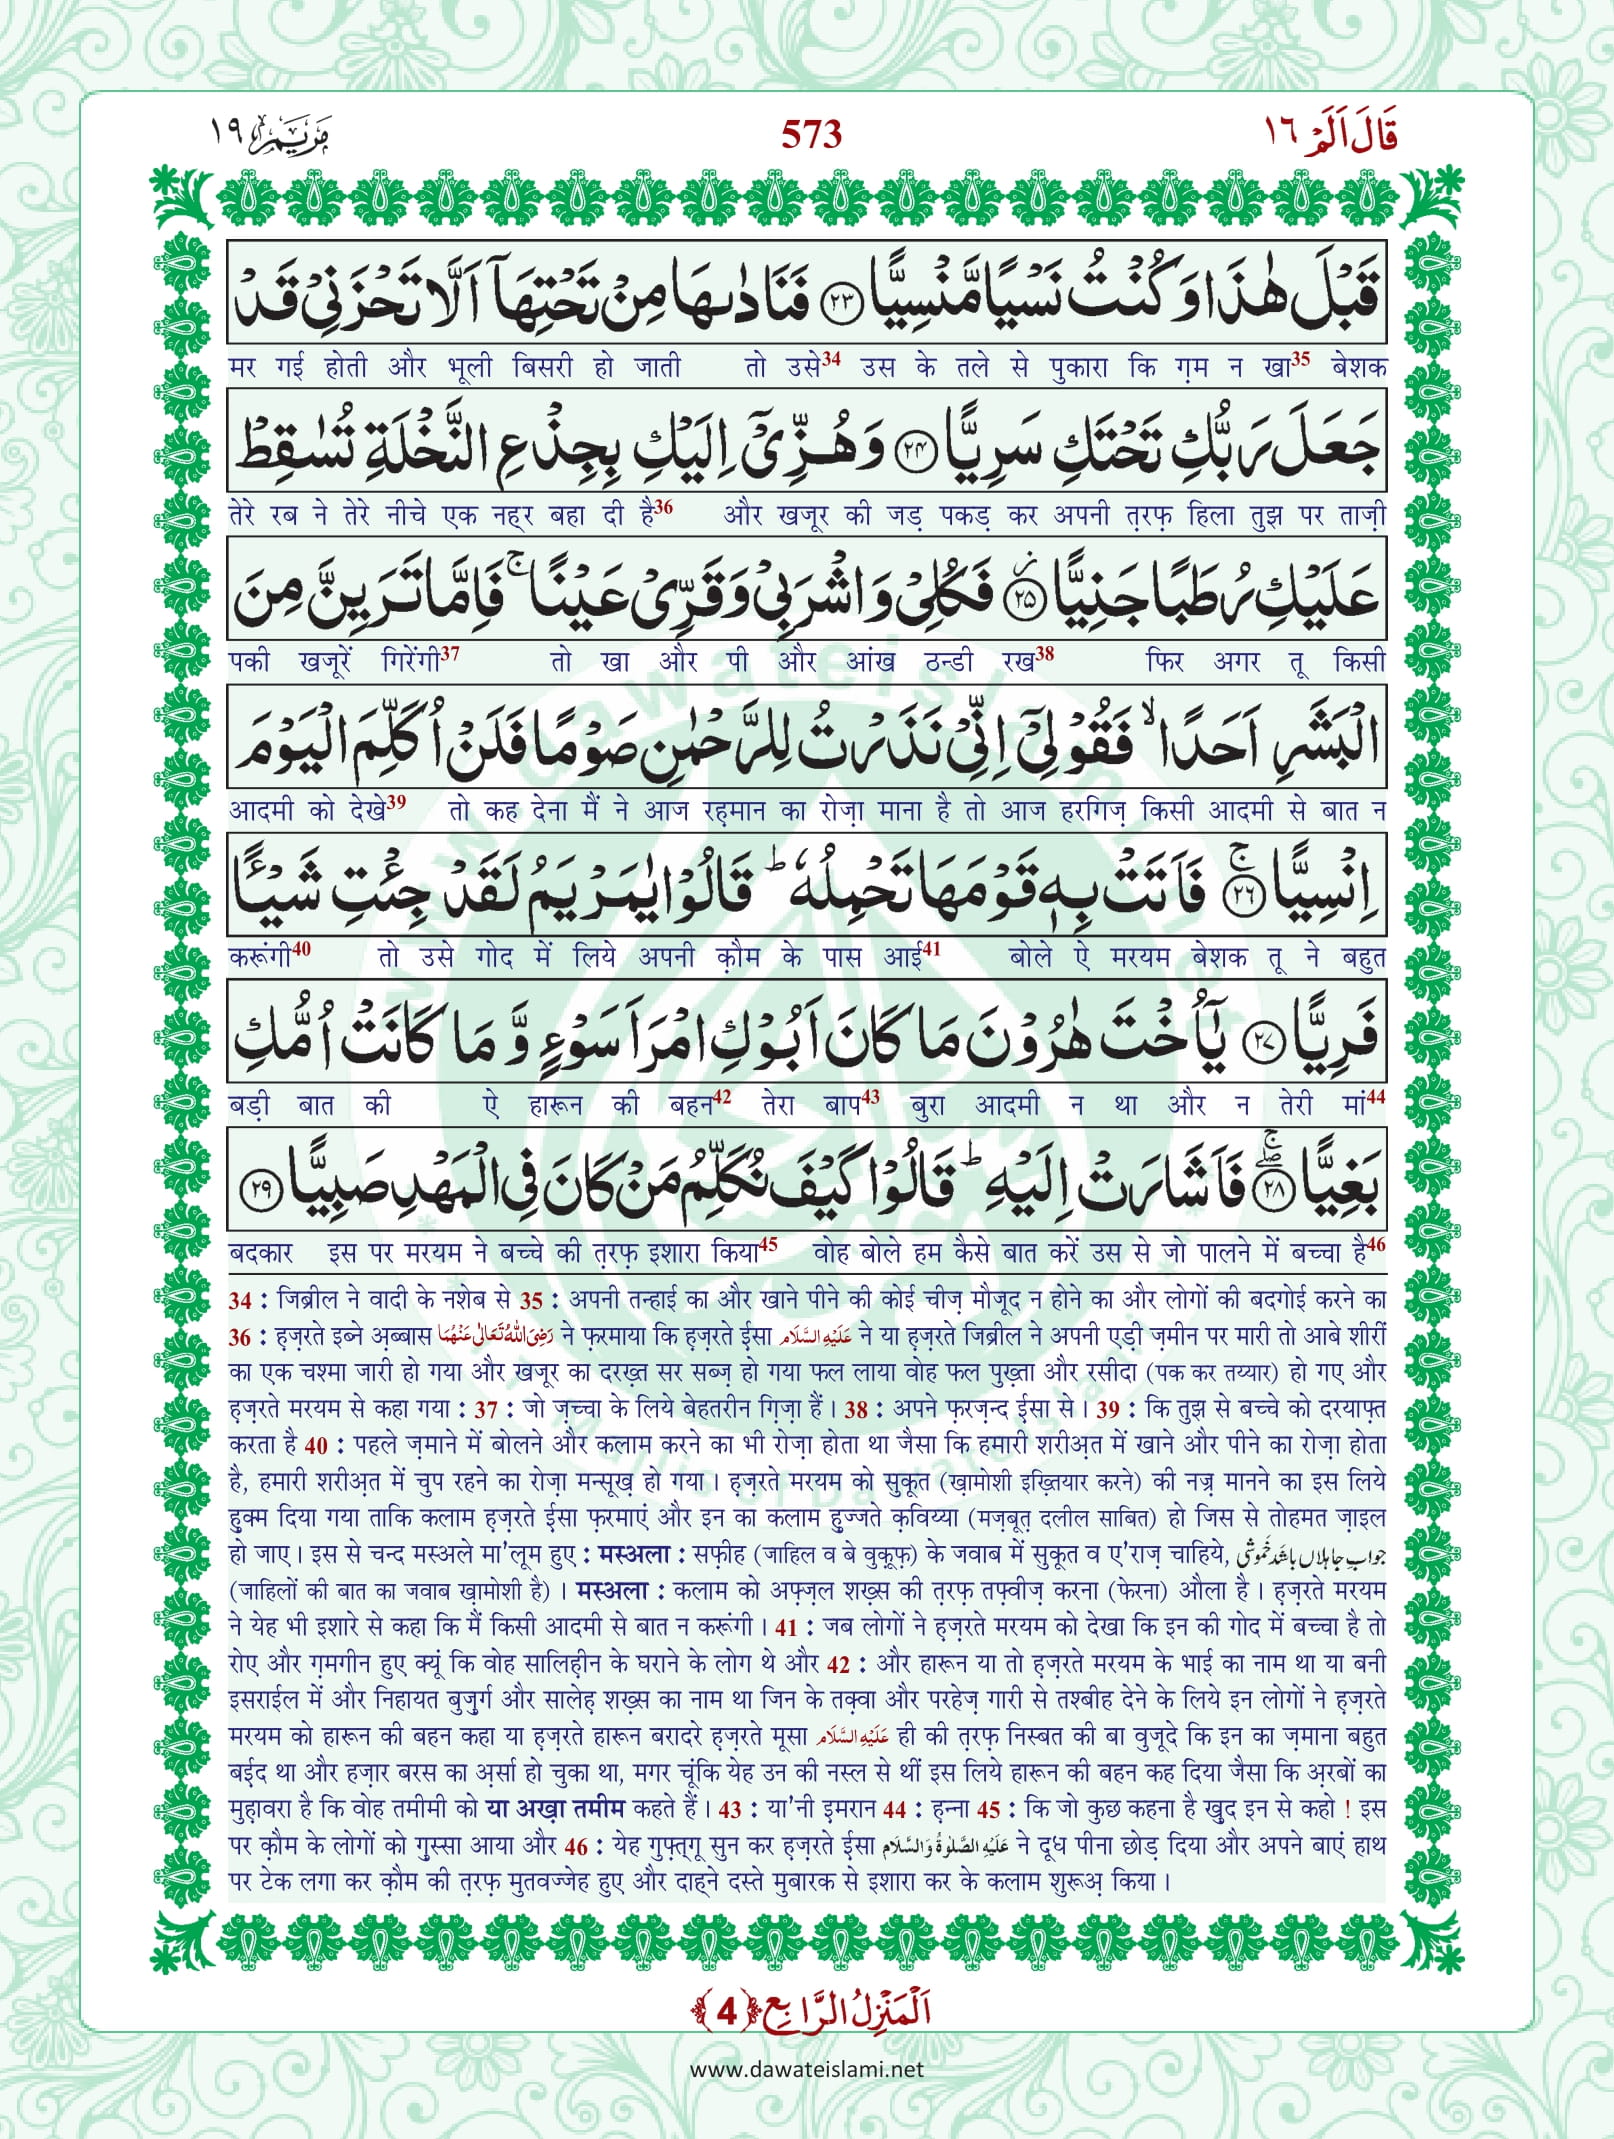 مَرْيَم ١٩
573
قَالَ اَلَمْ ١٦
قَبْلَ هٰذَا وَ كُنْتُ نَسْیًا مَّنْسِیًّا ﴿۲۳﴾ فَنَادٰىهَا مِنْ تَحْتِهَاۤ اَلَّا تَحْزَنِیْ قَدْ
मर गई होती और भूली बिसरी हो जाती तो उसे34 उस के तले से पुकारा कि ग़म न खा35 बेशक
جَعَلَ رَبُّكِ تَحْتَكِ سَرِیًّا ﴿۲۴﴾ وَ هُزِّیْۤ اِلَیْكِ بِجِذْعِ النَّخْلَةِ تُسٰقِطْ
तेरे रब ने तेरे नीचे एक नह्‍र बहा दी है36 और खजूर की जड़ पकड़ कर अपनी त़रफ़ हिला तुझ पर ताज़ी
عَلَیْكِ رُطَبًا جَنِیًّا ﴿۲۵﴾٘ فَكُلِیْ وَ اشْرَبِیْ وَ قَرِّیْ عَیْنًا ۚ فَاِمَّا تَرَیِنَّ مِنَ
पकी खजूरें गिरेंगी37 तो खा और पी और आंख ठन्डी रख38 फिर अगर तू किसी
الْبَشَرِ اَحَدًا ۙ فَقُوْلِیْۤ اِنِّیْ نَذَرْتُ لِلرَّحْمٰنِ صَوْمًا فَلَنْ اُكَلِّمَ الْیَوْمَ
आदमी को देखे39 तो कह देना मैं ने आज रह़मान का रोज़ा माना है तो आज हरगिज़ किसी आदमी से बात न
اِنْسِیًّا ﴿۲۶﴾ۚ فَاَتَتْ بِهٖ قَوْمَهَا تَحْمِلُهٗ ؕ قَالُوْا یٰمَرْیَمُ لَقَدْ جِئْتِ شَیْـًٔا
करूंगी40 तो उसे गोद में लिये अपनी क़ौम के पास आई41 बोले ऐ मरयम बेशक तू ने बहुत
فَرِیًّا ﴿۲۷﴾ یٰۤاُخْتَ هٰرُوْنَ مَا كَانَ اَبُوْكِ امْرَاَ سَوْءٍ وَّ مَا كَانَتْ اُمُّكِ
बड़ी बात की ऐ हारून की बहन42 तेरा बाप43 बुरा आदमी न था और न तेरी मां44
بَغِیًّا ﴿۲۸﴾ۖۚ فَاَشَارَتْ اِلَیْهِ ؕ قَالُوْا كَیْفَ نُكَلِّمُ مَنْ كَانَ فِی الْمَهْدِ صَبِیًّا ﴿۲۹﴾
बदकार इस पर मरयम ने बच्चे की त़रफ़ इशारा किया45 वोह बोले हम कैसे बात करें उस से जो पालने में बच्चा है46
34 : जिब्रील ने वादी के नशेब से 35 : अपनी तन्हाई का और खाने पीने की कोई चीज़ मौजूद न होने का और लोगों की बदगोई करने का
36 : ह़ज़रते इब्ने अ़ब्बास رَضِیَ اللّٰہُ تَعَالٰی عَنْہُمَا ने फ़रमाया कि ह़ज़रते ईसा عَلَیْہِ السَّلَام ने या ह़ज़रते जिब्रील ने अपनी एड़ी ज़मीन पर मारी तो आबे शीरीं
का एक चश्मा जारी हो गया और खजूर का दरख़्त सर सब्ज़ हो गया फल लाया वोह फल पुख़्ता और रसीदा (पक कर तय्यार) हो गए और
ह़ज़रते मरयम से कहा गया : 37 : जो ज़च्चा के लिये बेहतरीन ग़िज़ा हैं। 38 : अपने फ़रज़न्द ईसा से। 39 : कि तुझ से बच्चे को दरयाफ़्त
करता है 40 : पहले ज़माने में बोलने और कलाम करने का भी रोज़ा होता था जैसा कि हमारी शरीअ़त में खाने और पीने का रोज़ा होता
है, हमारी शरीअ़त में चुप रहने का रोज़ा मन्सूख़ हो गया। ह़ज़रते मरयम को सुकूत (ख़ामोशी इख़्तियार करने) की नज़्र मानने का इस लिये
हुक्म दिया गया ताकि कलाम ह़ज़रते ईसा फ़रमाएं और इन का कलाम हुज्जते क़विय्या (मज़बूत़ दलील साबित) हो जिस से तोहमत ज़ाइल
हो जाए। इस से चन्द मस्अले मा'लूम हुए : मस्अला : सफ़ीह (जाहिल व बे वुक़ूफ़) के जवाब में सुकूत व ए'राज़ चाहिये, جوابِ جاہلاں باشد خموشی
(जाहिलों की बात का जवाब ख़ामोशी है)। मस्अला : कलाम को अफ़्ज़ल शख़्स की त़रफ़ तफ़्वीज़ करना (फेरना) औला है। ह़ज़रते मरयम
ने येह भी इशारे से कहा कि मैं किसी आदमी से बात न करूंगी। 41 : जब लोगों ने ह़ज़रते मरयम को देखा कि इन की गोद में बच्चा है तो
रोए और ग़मगीन हुए क्यूं कि वोह सालिह़ीन के घराने के लोग थे और 42 : और हारून या तो ह़ज़रते मरयम के भाई का नाम था या बनी
इसराईल में और निहायत बुज़ुर्ग और सालेह़ शख़्स का नाम था जिन के तक़्वा और परहेज़ गारी से तश्बीह देने के लिये इन लोगों ने ह़ज़रते
मरयम को हारून की बहन कहा या ह़ज़रते हारून बरादरे ह़ज़रते मूसा عَلَیْہِ السَّلَام ही की त़रफ़ निस्बत की बा वुजूदे कि इन का ज़माना बहुत
बई़द था और हज़ार बरस का अ़र्सा हो चुका था, मगर चूंकि येह उन की नस्ल से थीं इस लिये हारून की बहन कह दिया जैसा कि अ़रबों का
मुह़ावरा है कि वोह तमीमी को या अख़ा तमीम कहते हैं। 43 : या'नी इमरान 44 : ह़न्ना 45 : कि जो कुछ कहना है ख़ुद इन से कहो ! इस
पर क़ौम के लोगों को ग़ुस्सा आया और 46 : येह गुफ़्तगू सुन कर ह़ज़रते ईसा عَلَیْہِ الصَّلٰوۃُ وَالسَّلَام ने दूध पीना छोड़ दिया और अपने बाएं हाथ
पर टेक लगा कर क़ौम की त़रफ़ मुतवज्जेह हुए और दाह्‍ने दस्ते मुबारक से इशारा कर के कलाम शुरूअ़ किया।
اَلْمَنْزِلُ الرَّابِع ﴿4﴾
www.dawateislami.net